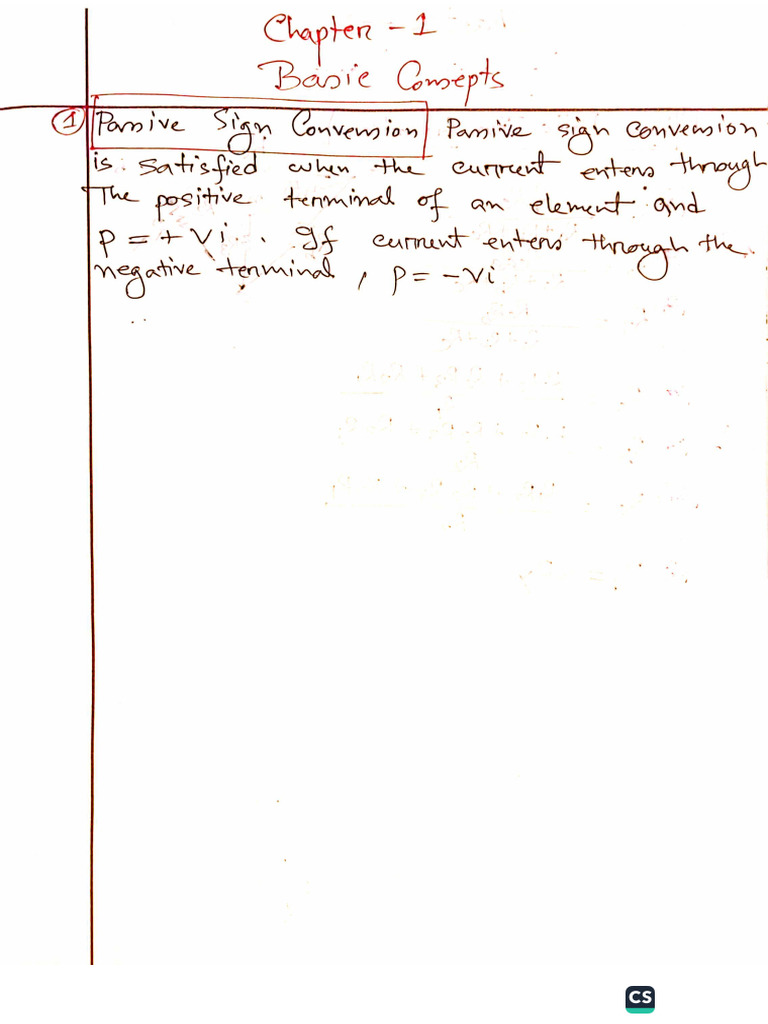 Chapter - 1
Basic Consepts
① Passive Sign Convension Passive sign convension
is satisfied when the current enters through
The positive terminal of an element and
p = + vi. If current enters through the
negative terminal, p = - vi
CS